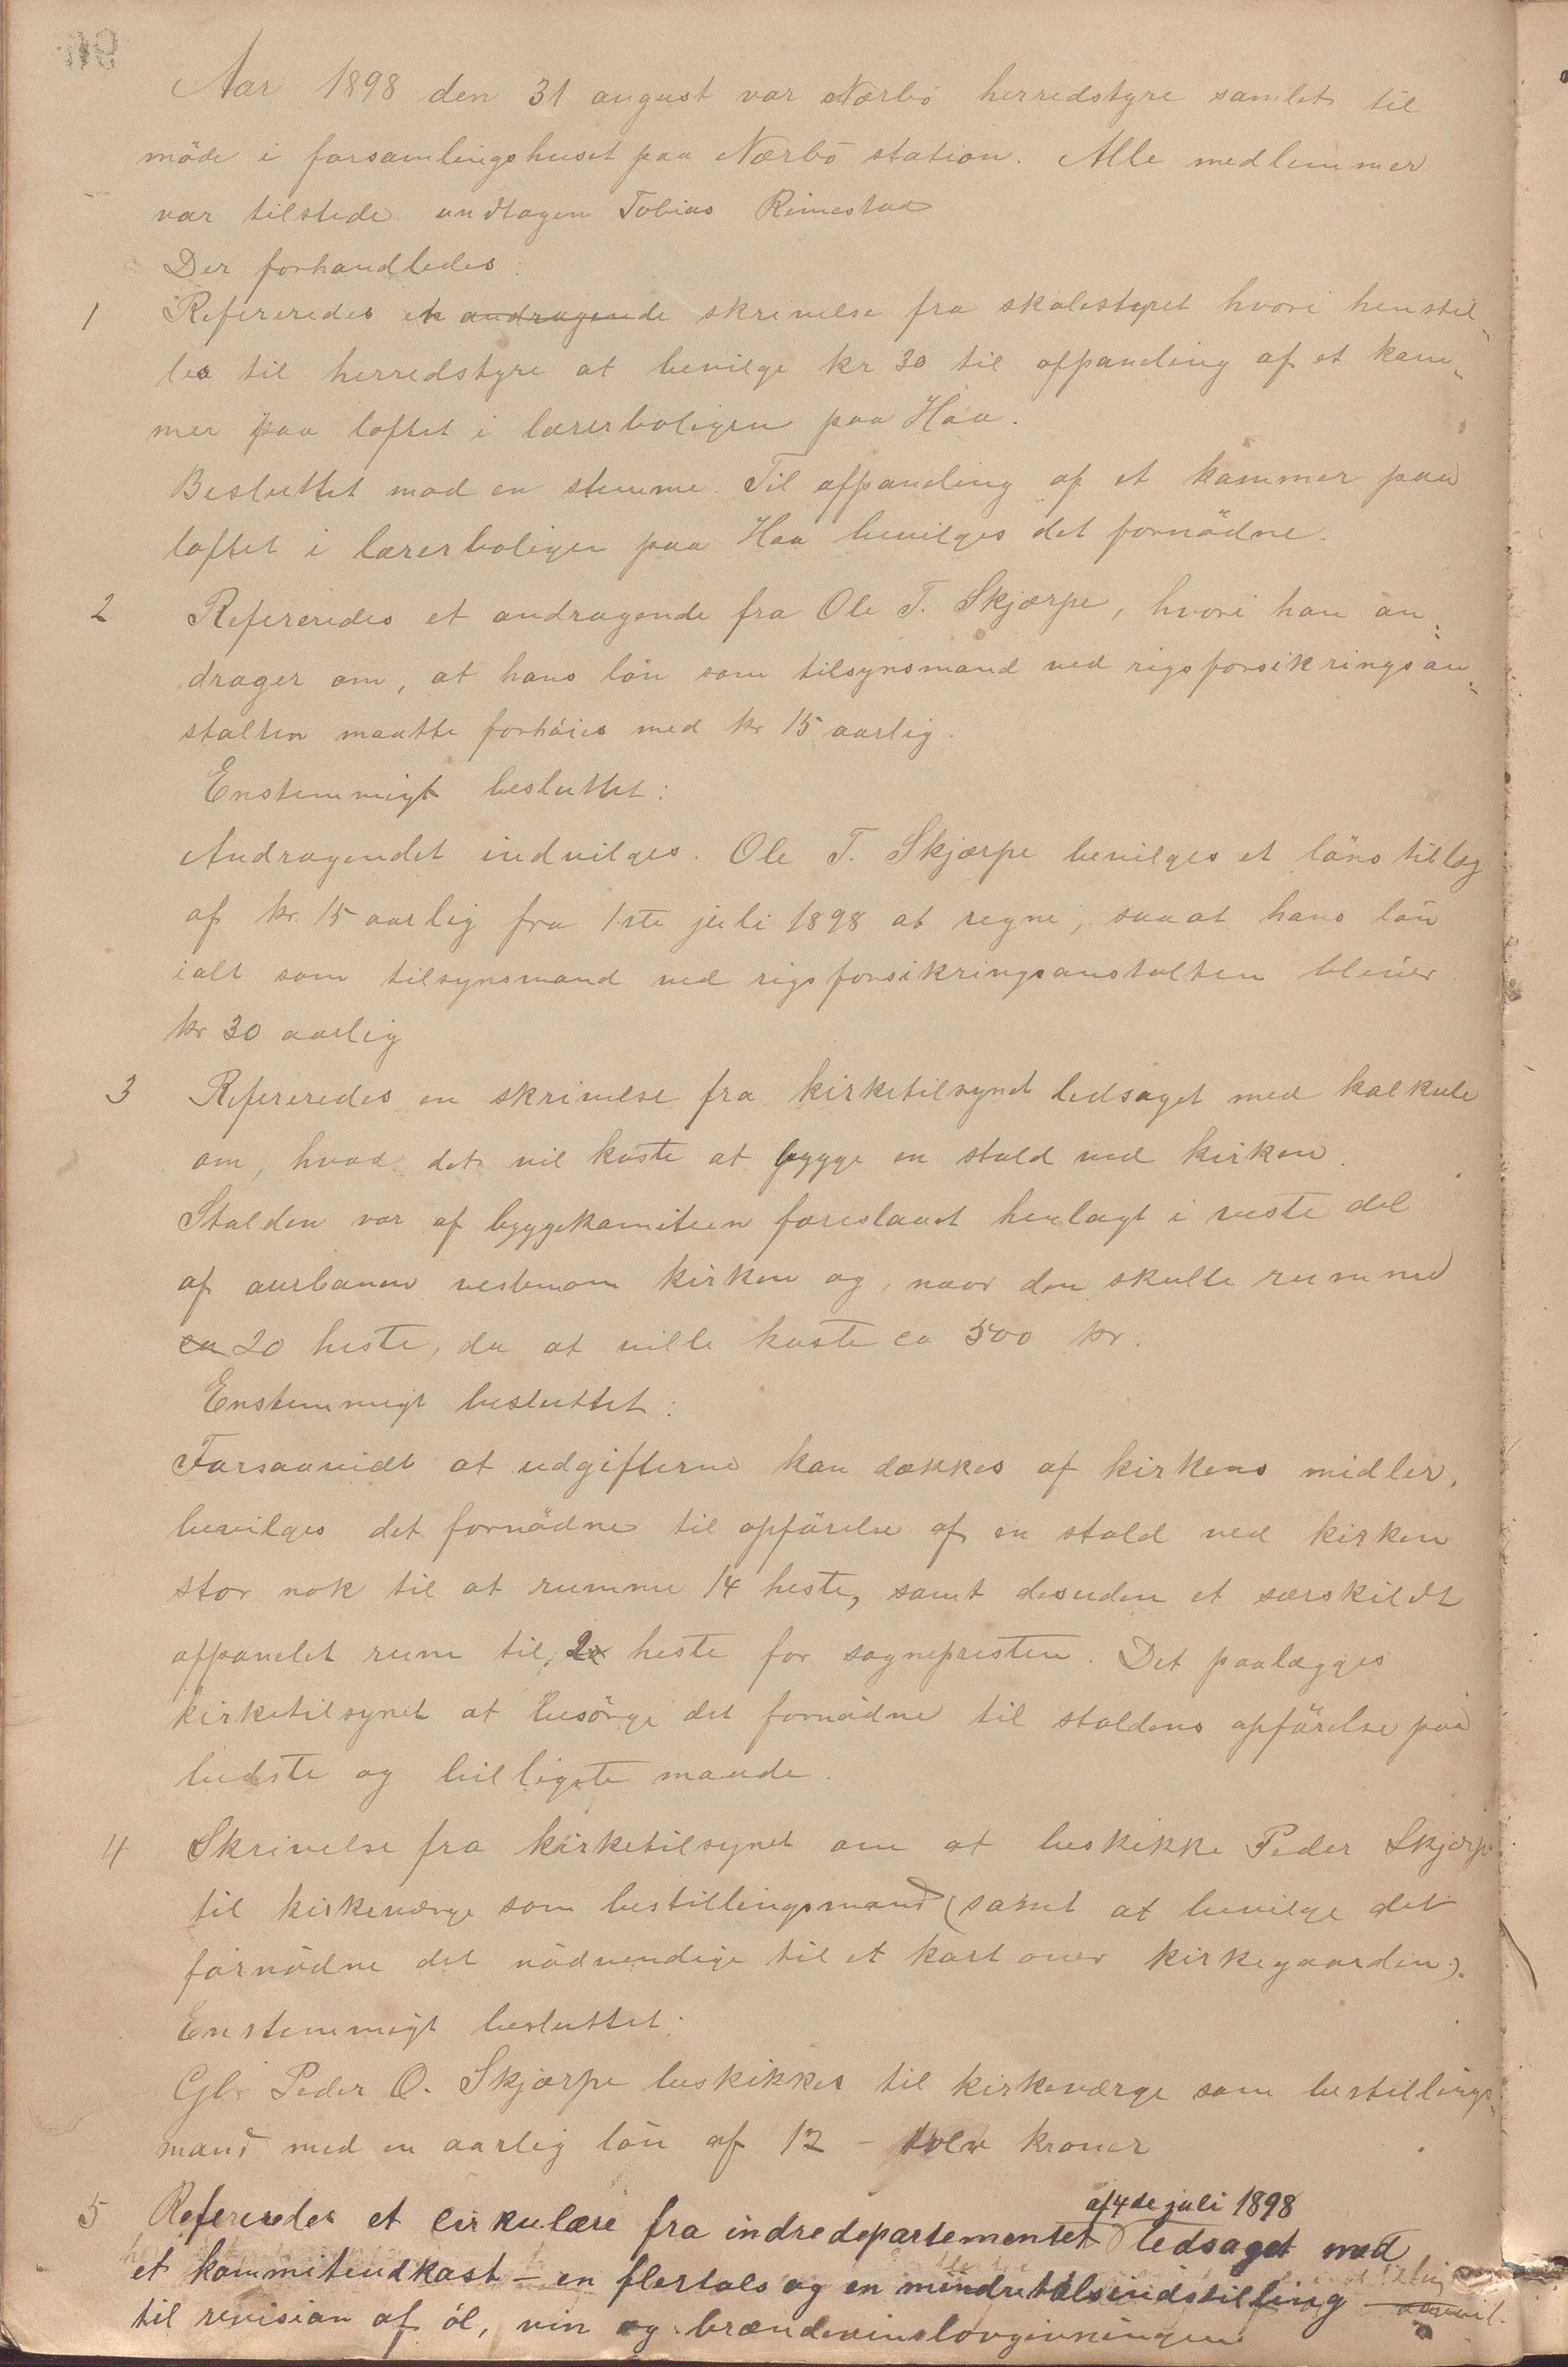 Aar 1898 den 31 august var Nærbö herredstyre samlet til
möde i forsamlingshuset paa Nærbö station. Alle medlemmer
var tilstede undtagen Tobias Rimestad
Der forhandledes:
1 Refereredes en andragende skrivelse fra skolestyret hvori henstil-
les til herredstyre at bevilge kr 30 til afpanling af et kam-
mer paa loftet i lærerboligen paa Haa.
Besluttet mod en stemme. Til afpanling af et kammer paa
loftet i lærerboligen paa Haa bevilges det fornödne.
2 Refereredes et andragende fra Ole T. Skjærpe, hvori han an-
drager om, at hans lön som tilsynsmand ved rigsforsikringsan-
stalten maatte forhöies med kr 15 aarlig.
Enstemmigt besluttet:
Andragendet indvilges. Ole T. Skjærpe bevilges et lönstillæg
af kr. 15 aarlig fra 1ste juli 1898 at regne, saaat hans lön
ialt som tilsynsmand ved rigsforsikringsanstalten bliver
kr 30 aarlig
3 Refereredes en skrivelse fra kirketilsynet ledsaget med kalkule
om, hvad det vil koste at bygge en stald ved kirken.
Stalden var af byggekomiteen foreslaaet henlagt i veste del
af aurbanen vestenom kirken og, naar den skulle rumme
ca 20 heste, da at ville koste ca 500 kr.
Enstemmigt besluttet:
Forsaavidt at udgifterne kan dækkes af kirkens midler,
bevilges det fornödne til opförelse af en stald ved kirken
stor nok til at rumme 14 heste, samt desuden et særskildt
afpanelet rum til 2 heste for sognepresten. Det paalægges
kirketilsynet at besörge det fornödne til staldens opförelse paa
bedste og billigste maade.
4 Skrivelse fra kirketilsynet om at beskikke Peder Skjærpe
til kirkeværge som bestillingsmand (samt at bevilge det
fornödne det nödvendige til et kart over kirkegaarden).
Enstemmigt besluttet:
Gbr Peder O. Skjærpe beskikkes til kirkeværge som bestillings-
mand med en aarlig lön af 12 - tolv kroner
af 4de juli 1898
5 Refereredes et cirkulære fra indredepartementet ledsaget med
et kommiteudkast – en flertals og en mindretalsindstilling
til revision af öl, vin og brændevinslovgivningen